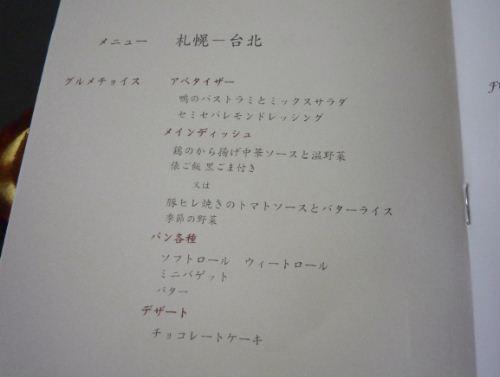 メニュー 札幌－台北
グルメチョイス アペタイザー
鴨のパストラミとミックスサラダ
セミセパレモンドレッシング
メインディッシュ
鶏のから揚げ中華ソースと温野菜
俵ご飯 黒ごま付き
又は
豚ヒレ焼きのトマトソースとバターライス
季節の野菜
パン各種
ソフトロール ウィートロール
ミニバゲット
バター
デザート
チョコレートケーキ